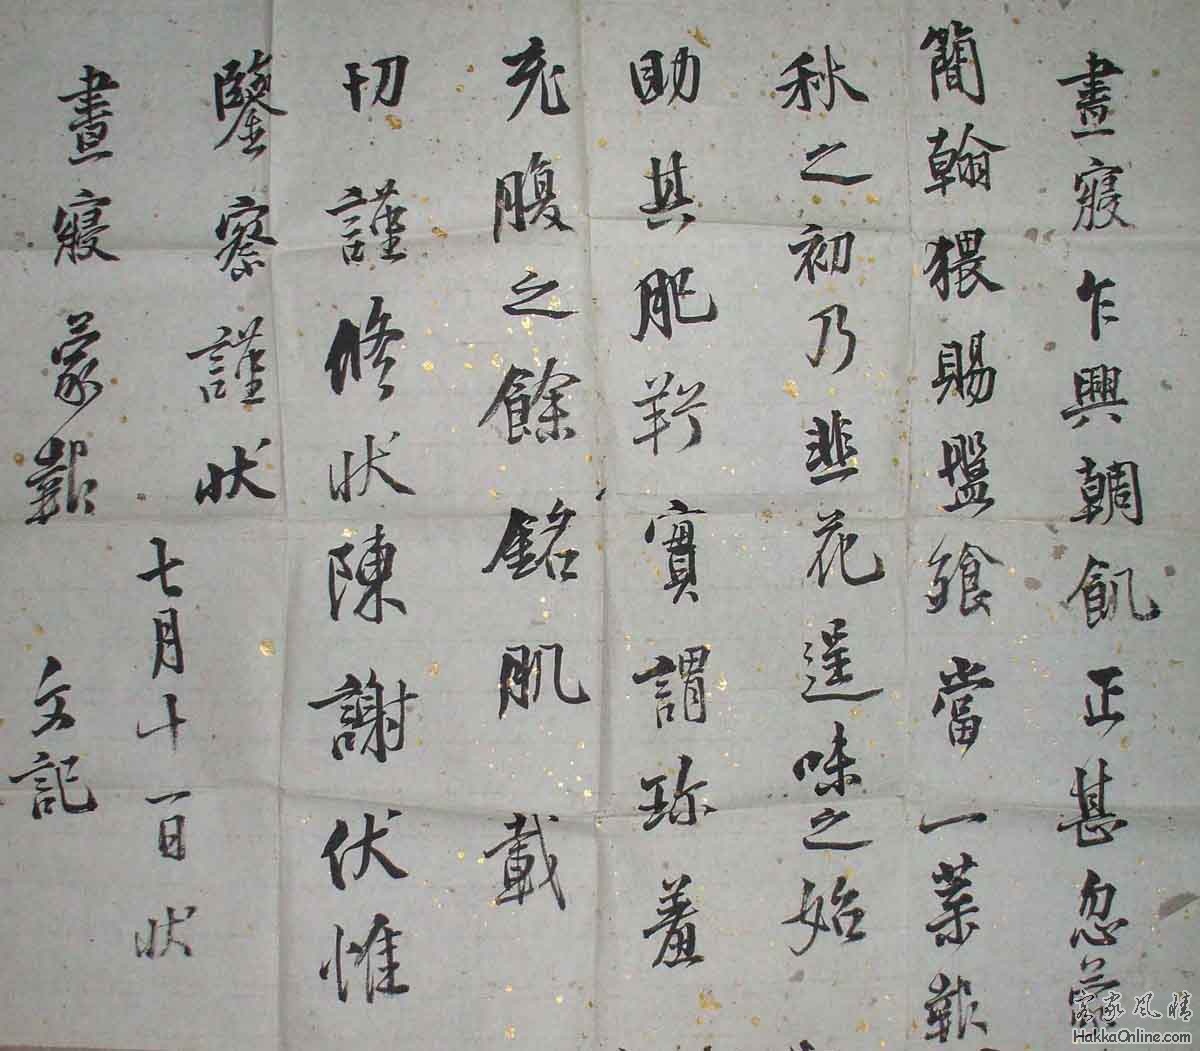 晝寢乍興輖飢正甚忽蒙
簡翰猥賜盤飧當一葉報
秋之初乃韭花逞味之始
助其肥羜實謂珍羞
充腹之餘銘肌載
切謹修狀陳謝伏惟
鑒察謹狀
七月十一日狀
晝寢蒙報 文記
客家风情
HakkaOnline.com